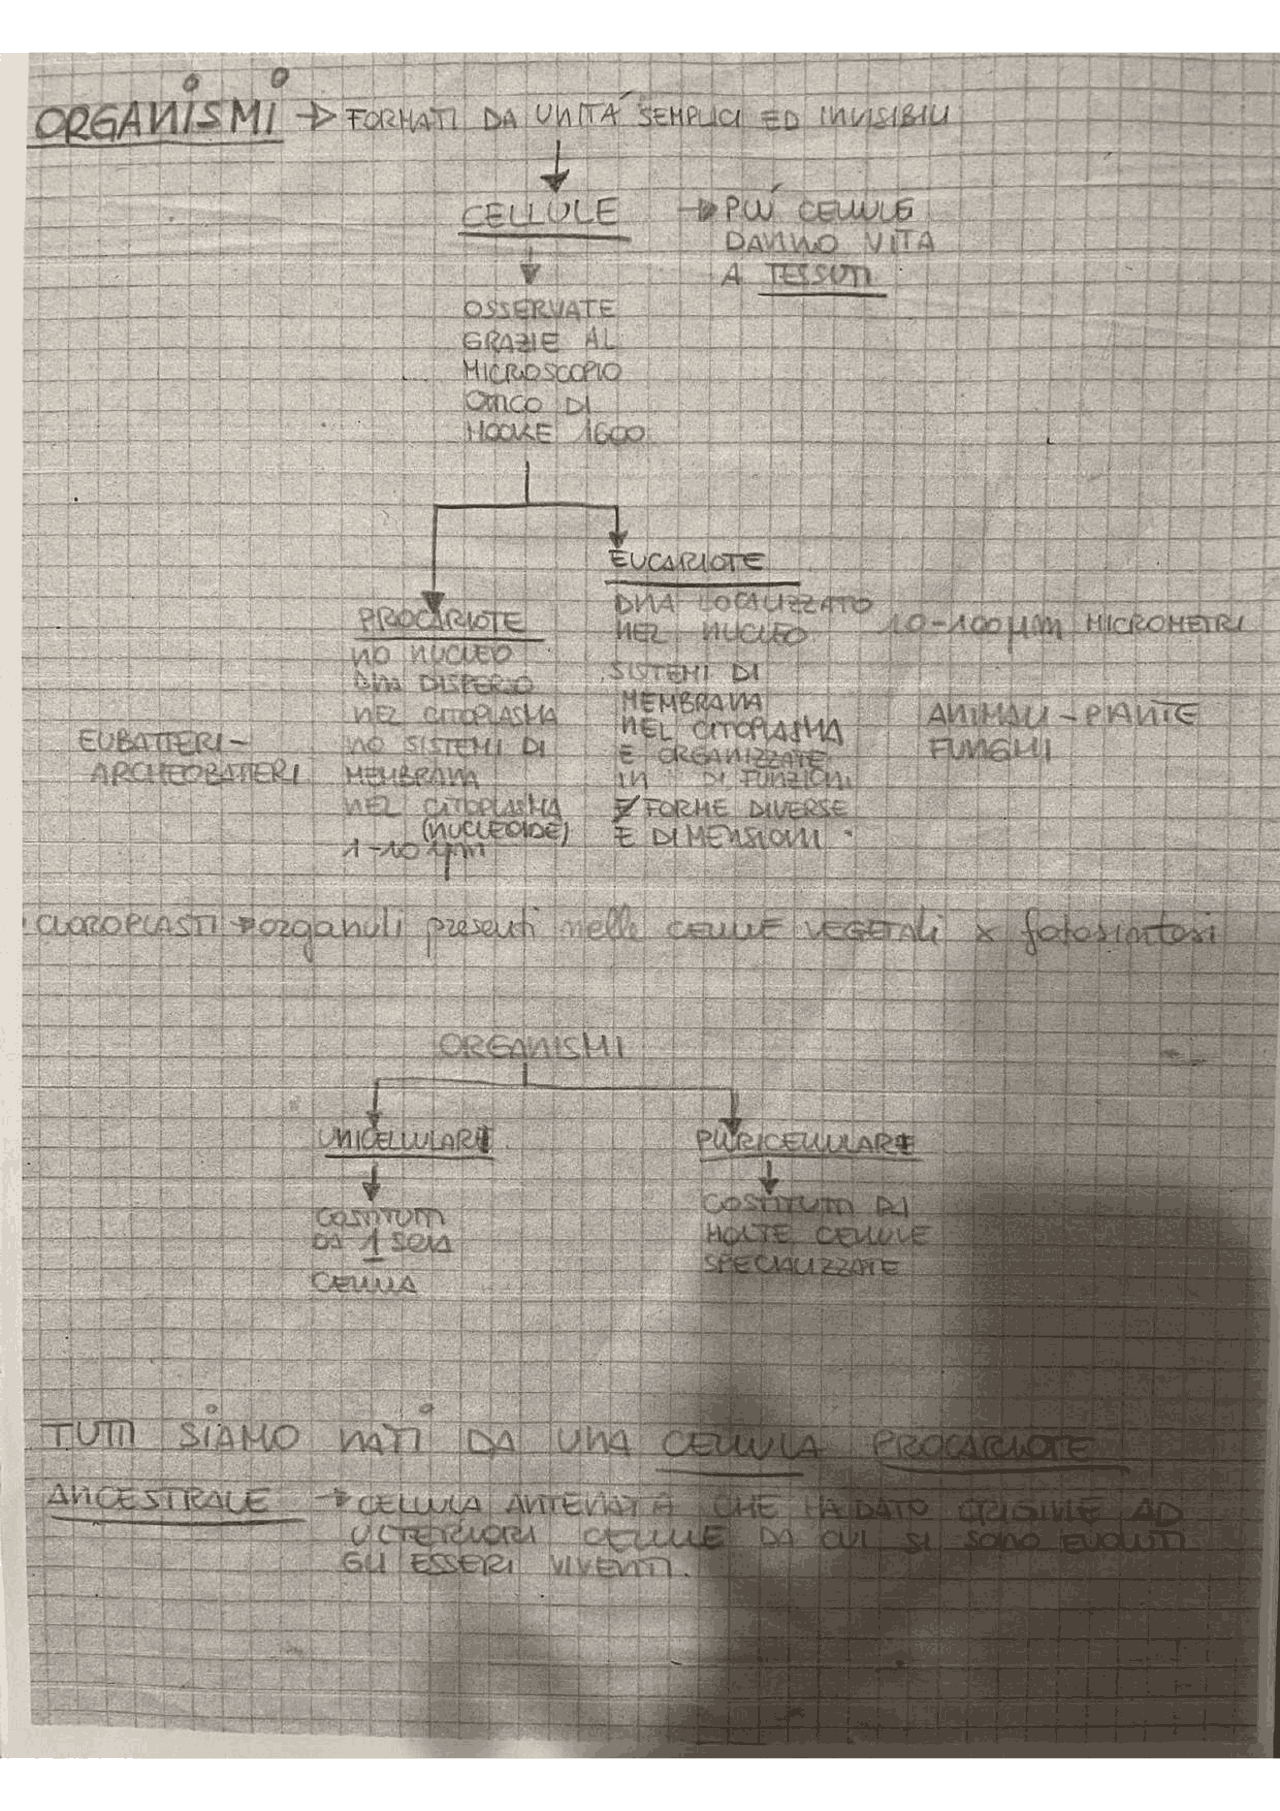 ORGANISMI → FORMATI DA UNITÀ SEMPLICI ED INVISIBILI
CELLULE → PIÙ CELLULE
DANNO VITA
A TESSUTI
OSSERVATE
GRAZIE AL
MICROSCOPIO
OTTICO DI
HOOKE 1600
EUCARIOTE
DNA LOCALIZZATO
NEL NUCLEO
10-100 µm MICROMETRI
SISTEMI DI
MEMBRANA
NEL CITOPLASMA
E ORGANIZZATE
IN DI FUNZIONI
FORME DIVERSE
E DIMENSIONI
ANIMALI - PIANTE
FUNGHI
PROCARIOTE
NO NUCLEO
DNA DISPERSO
NEL CITOPLASMA
NO SISTEMI DI
MEMBRANA
NEL CITOPLASMA
(NUCLEOIDE)
1-10 µm
EUBATTERI -
ARCHEOBATTERI
• CLOROPLASTI → organuli presenti nelle CELLULE VEGETALI x fotosintesi
ORGANISMI
UNICELLULARI
COSTITUITI
DA 1 SOLA
CELLULA
PLURICELLULARI
COSTITUITI DI
MOLTE CELLULE
SPECIALIZZATE
TUTTI SIAMO NATI DA UNA CELLULA PROCARIOTE
ANCESTRALE → CELLULA ANTENATA CHE HA DATO ORIGINE AD
ULTERIORI CELLULE DA CUI SI SONO EVOLUTI
GLI ESSERI VIVENTI.